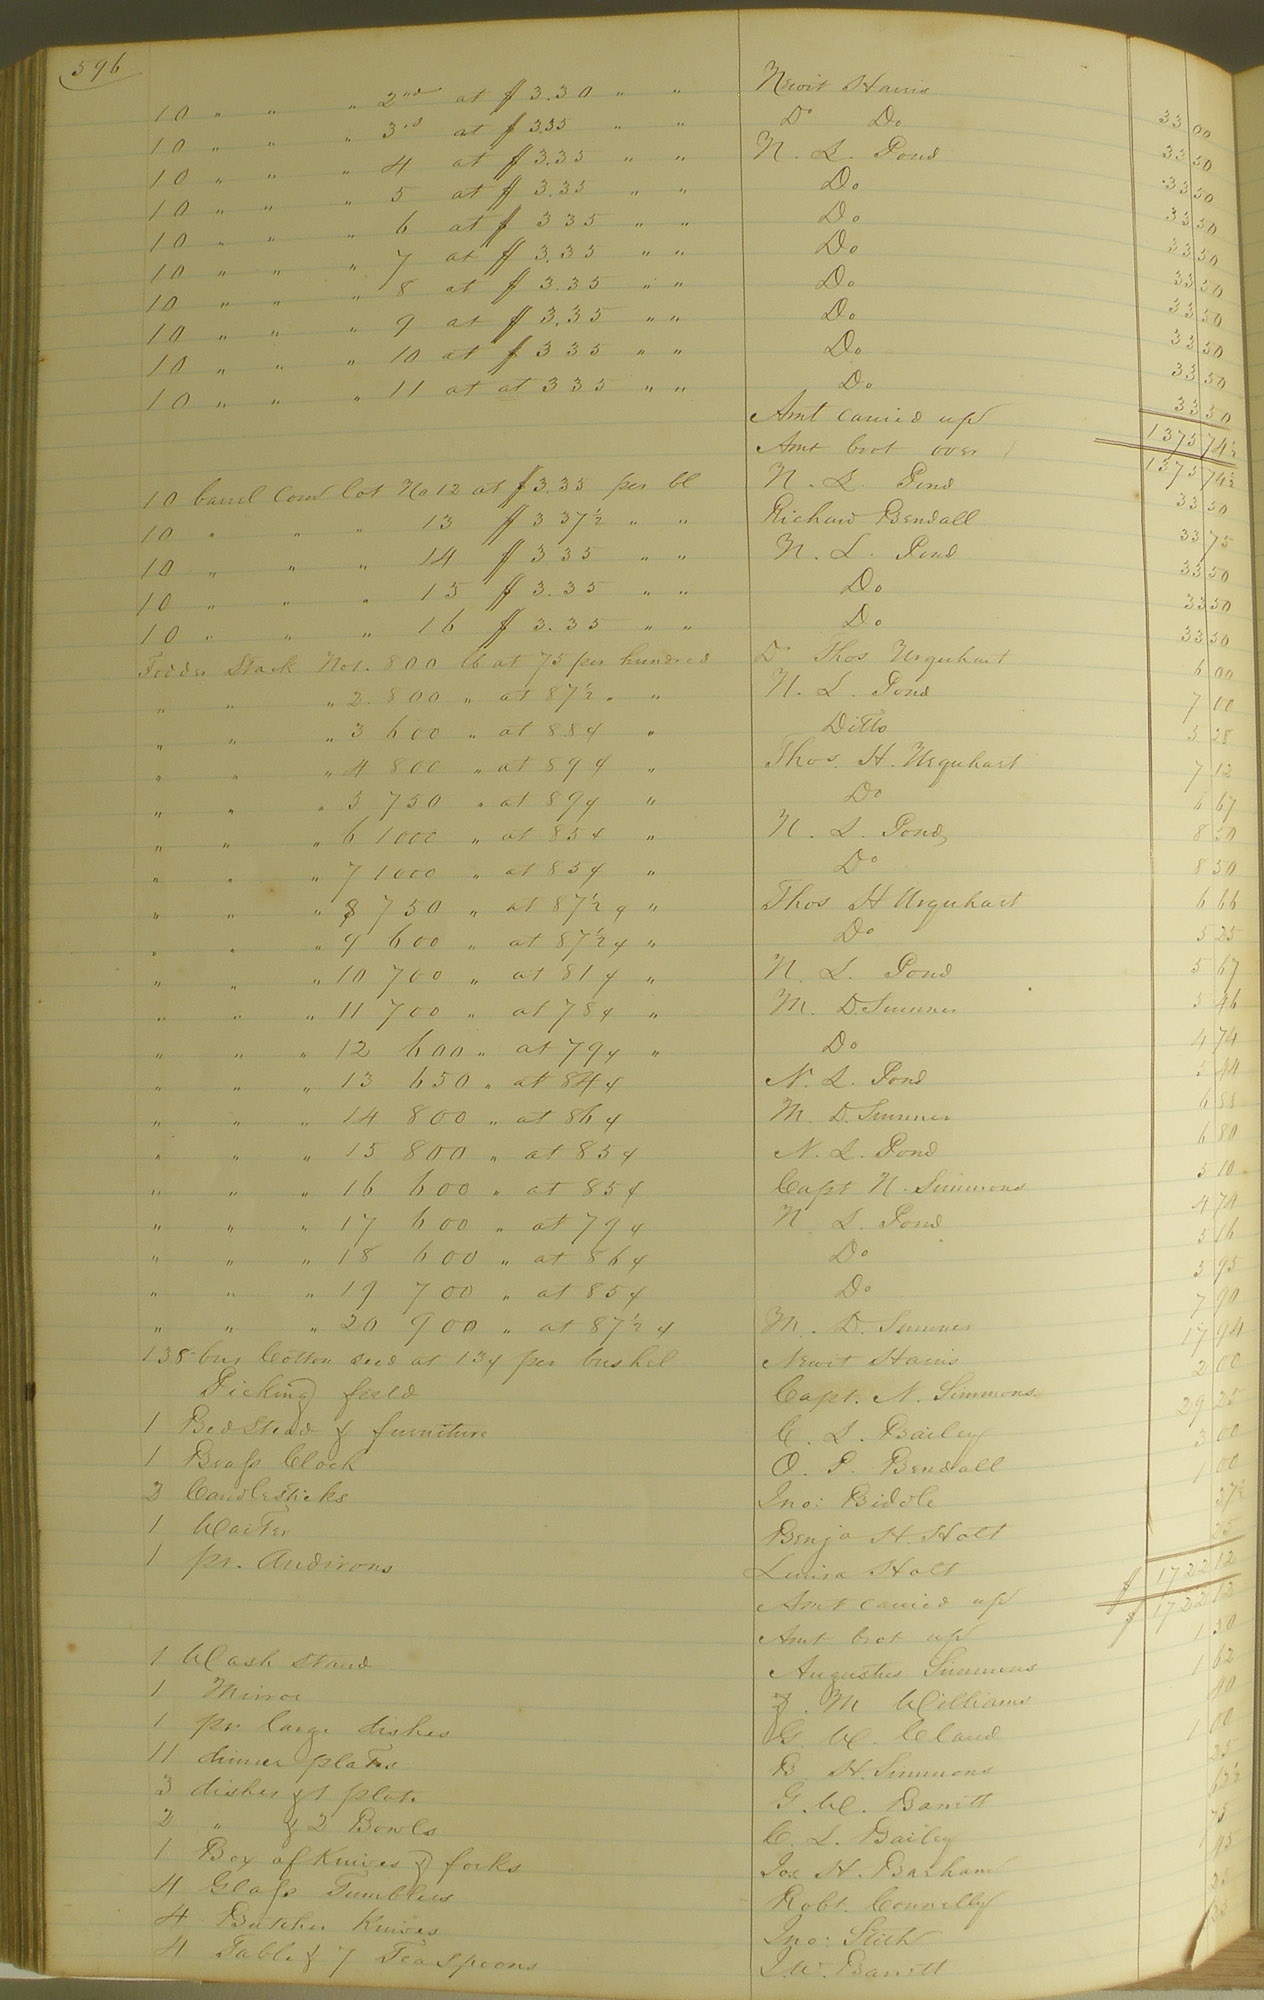 596
10 " " " 2nd at $3.30 " " Newit Harris 33 00
10 " " " 3rd at $3.35 " " Do Do 33 50
10 " " " 4 at $3.35 " " N. L. Pond 33 50
10 " " " 5 at $3.35 " " Do 33 50
10 " " " 6 at $335 " " Do 33 50
10 " " " 7 at $3.35 " " Do 33 50
10 " " " 8 at $3.35 " " Do 33 50
10 " " " 9 at $3.35 " " Do 33 50
10 " " " 10 at $335 " " Do 33 50
10 " " " 11 at at 335 " " Do 33 50
Amt carried up 1375 74½
Amt brot over 1375 74½
10 barrel Corn lot No 12 at $3.35 per bl N. L. Pond 33 50
10 " " " 13 $3 37½ " " Richard Bendall 33 75
10 " " " 14 $335 " " N. L. Pond 33 50
10 " " " 15 $3.35 " " Do 33 50
10 " " " 16 $3.35 " " Do 33 50
Fodder Stack No 1. 800 lb at 75 per hundred Do Thos Urquhart 6 00
" " " 2. 800 " at 87½ " " N. L. Pond 7 00
" " " 3 600 " at 88¢ " Ditto 5 28
" " " 4 800 " at 89¢ " Thos. H. Urquhart 7 12
" " " 5 750 " at 89¢ " Do 6 67
" " " 6 1000 " at 85¢ " N. L. Pond 8 50
" " " 7 1000 " at 85¢ " Do 8 50
" " " 8 750 " at 87½¢ " Thos H Urquhart 6 66
" " " 9 600 " at 87½¢ " Do 5 25
" " " 10 700 " at 81¢ " N. L. Pond 5 67
" " " 11 700 " at 78¢ " M. D. Sumner 5 46
" " " 12 600 " at 79¢ " Do 4 74
" " " 13 650 " at 84¢ N. L. Pond 5 44
" " " 14 800 " at 86¢ M. D. Sumner 6 88
" " " 15 800 " at 85¢ N. L. Pond 6 80
" " " 16 600 " at 85¢ Capt N. Simmons 5 10
" " " 17 600 " at 79¢ N L. Pond 4 74
" " " 18 600 " at 86¢ Do 5 16
" " " 19 700 " at 85¢ Do 5 95
" " " 20 900 " at 87½¢ M. D. Sumner 7 90
138 bus Cotton seed at 13¢ per bushel Newit Harris 17 94
Picking field Capt. N. Simmons 2 00
1 Bedstead & furniture C. L. Bailey 29 25
1 Brass Clock O. P. Bendall 3 00
3 Candlesticks Jno: Biddle 1 00
1 Waiter Benja H. Holt 37½
1 pr. Andirons Luisa Holt 25
Amt carried up $1722 12
Amt brot up $1722 12
1 Wash stand Augustus Simmons 1 50
1 Mirror J. M Williams 1 62
1 pr large dishes G. W. Claud 40
11 dinner plates B. H. Simmons 1 00
3 dishes & 1 plate G. W. Barrett 25
2 " & 2 Bowls C. L. Bailey 62½
1 Box of Knives & forks Jos H. Barham 75
4 Glass Tumblers Robt. Connelly
4 Butcher Knives Jno: Stith 25
4 Table & 7 Teaspoons J. W. Barrett